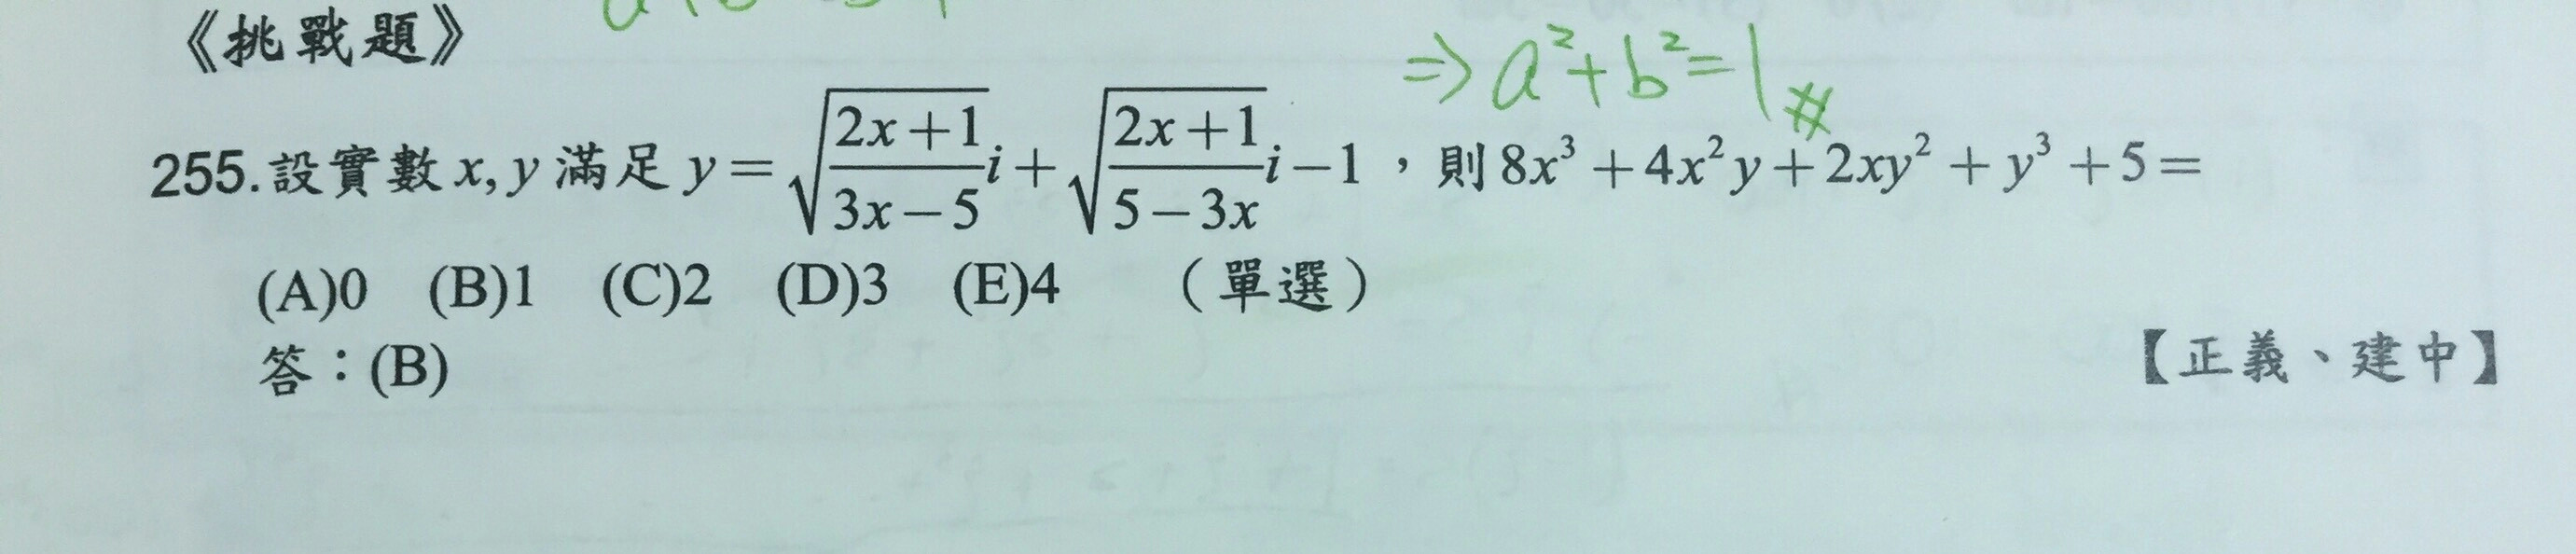 《挑戰題》
⇒ a²+b²=1#
255.設實數 x, y 滿足 y = √((2x+1)/(3x−5)) i + √((2x+1)/(5−3x)) i − 1 ,則 8x³ + 4x²y + 2xy² + y³ + 5 =
(A)0 (B)1 (C)2 (D)3 (E)4 (單選)
答:(B)
【正義、建中】